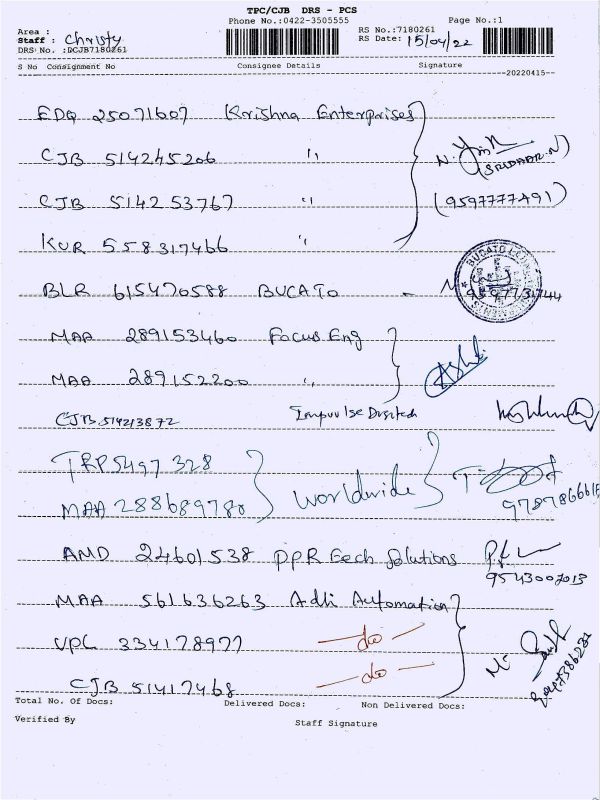 TPC/CJB DRS - PCS
Phone No.:0422-3505555 Page No.:1
Area :
Staff : Christy
DRS No. :DCJB7180261
RS No.:7180261
RS Date: 15/04/22
S No Consignment No Consignee Details Signature
20220415
EDQ 25071607 Krishna Enterprises
CJB 514245206 "
N. (SRIDHAR.N)
CJB 514253767 "
(9597777491)
KUR 558317466 "
BLR 615470588 BUCATO -
MAA 289153460 Focus Eng
MAA 289152200 "
CJB 514213872
TRP5497 328
MAA 288689780 Worldwide
AMD 24601538 PPR Eech Solutions
9543007013
MAA 561636263 Adhi Automation
VPL 334178977 - do -
CJB 51417468 - do -
Total No. Of Docs: Delivered Docs: Non Delivered Docs:
Verified By Staff Signature